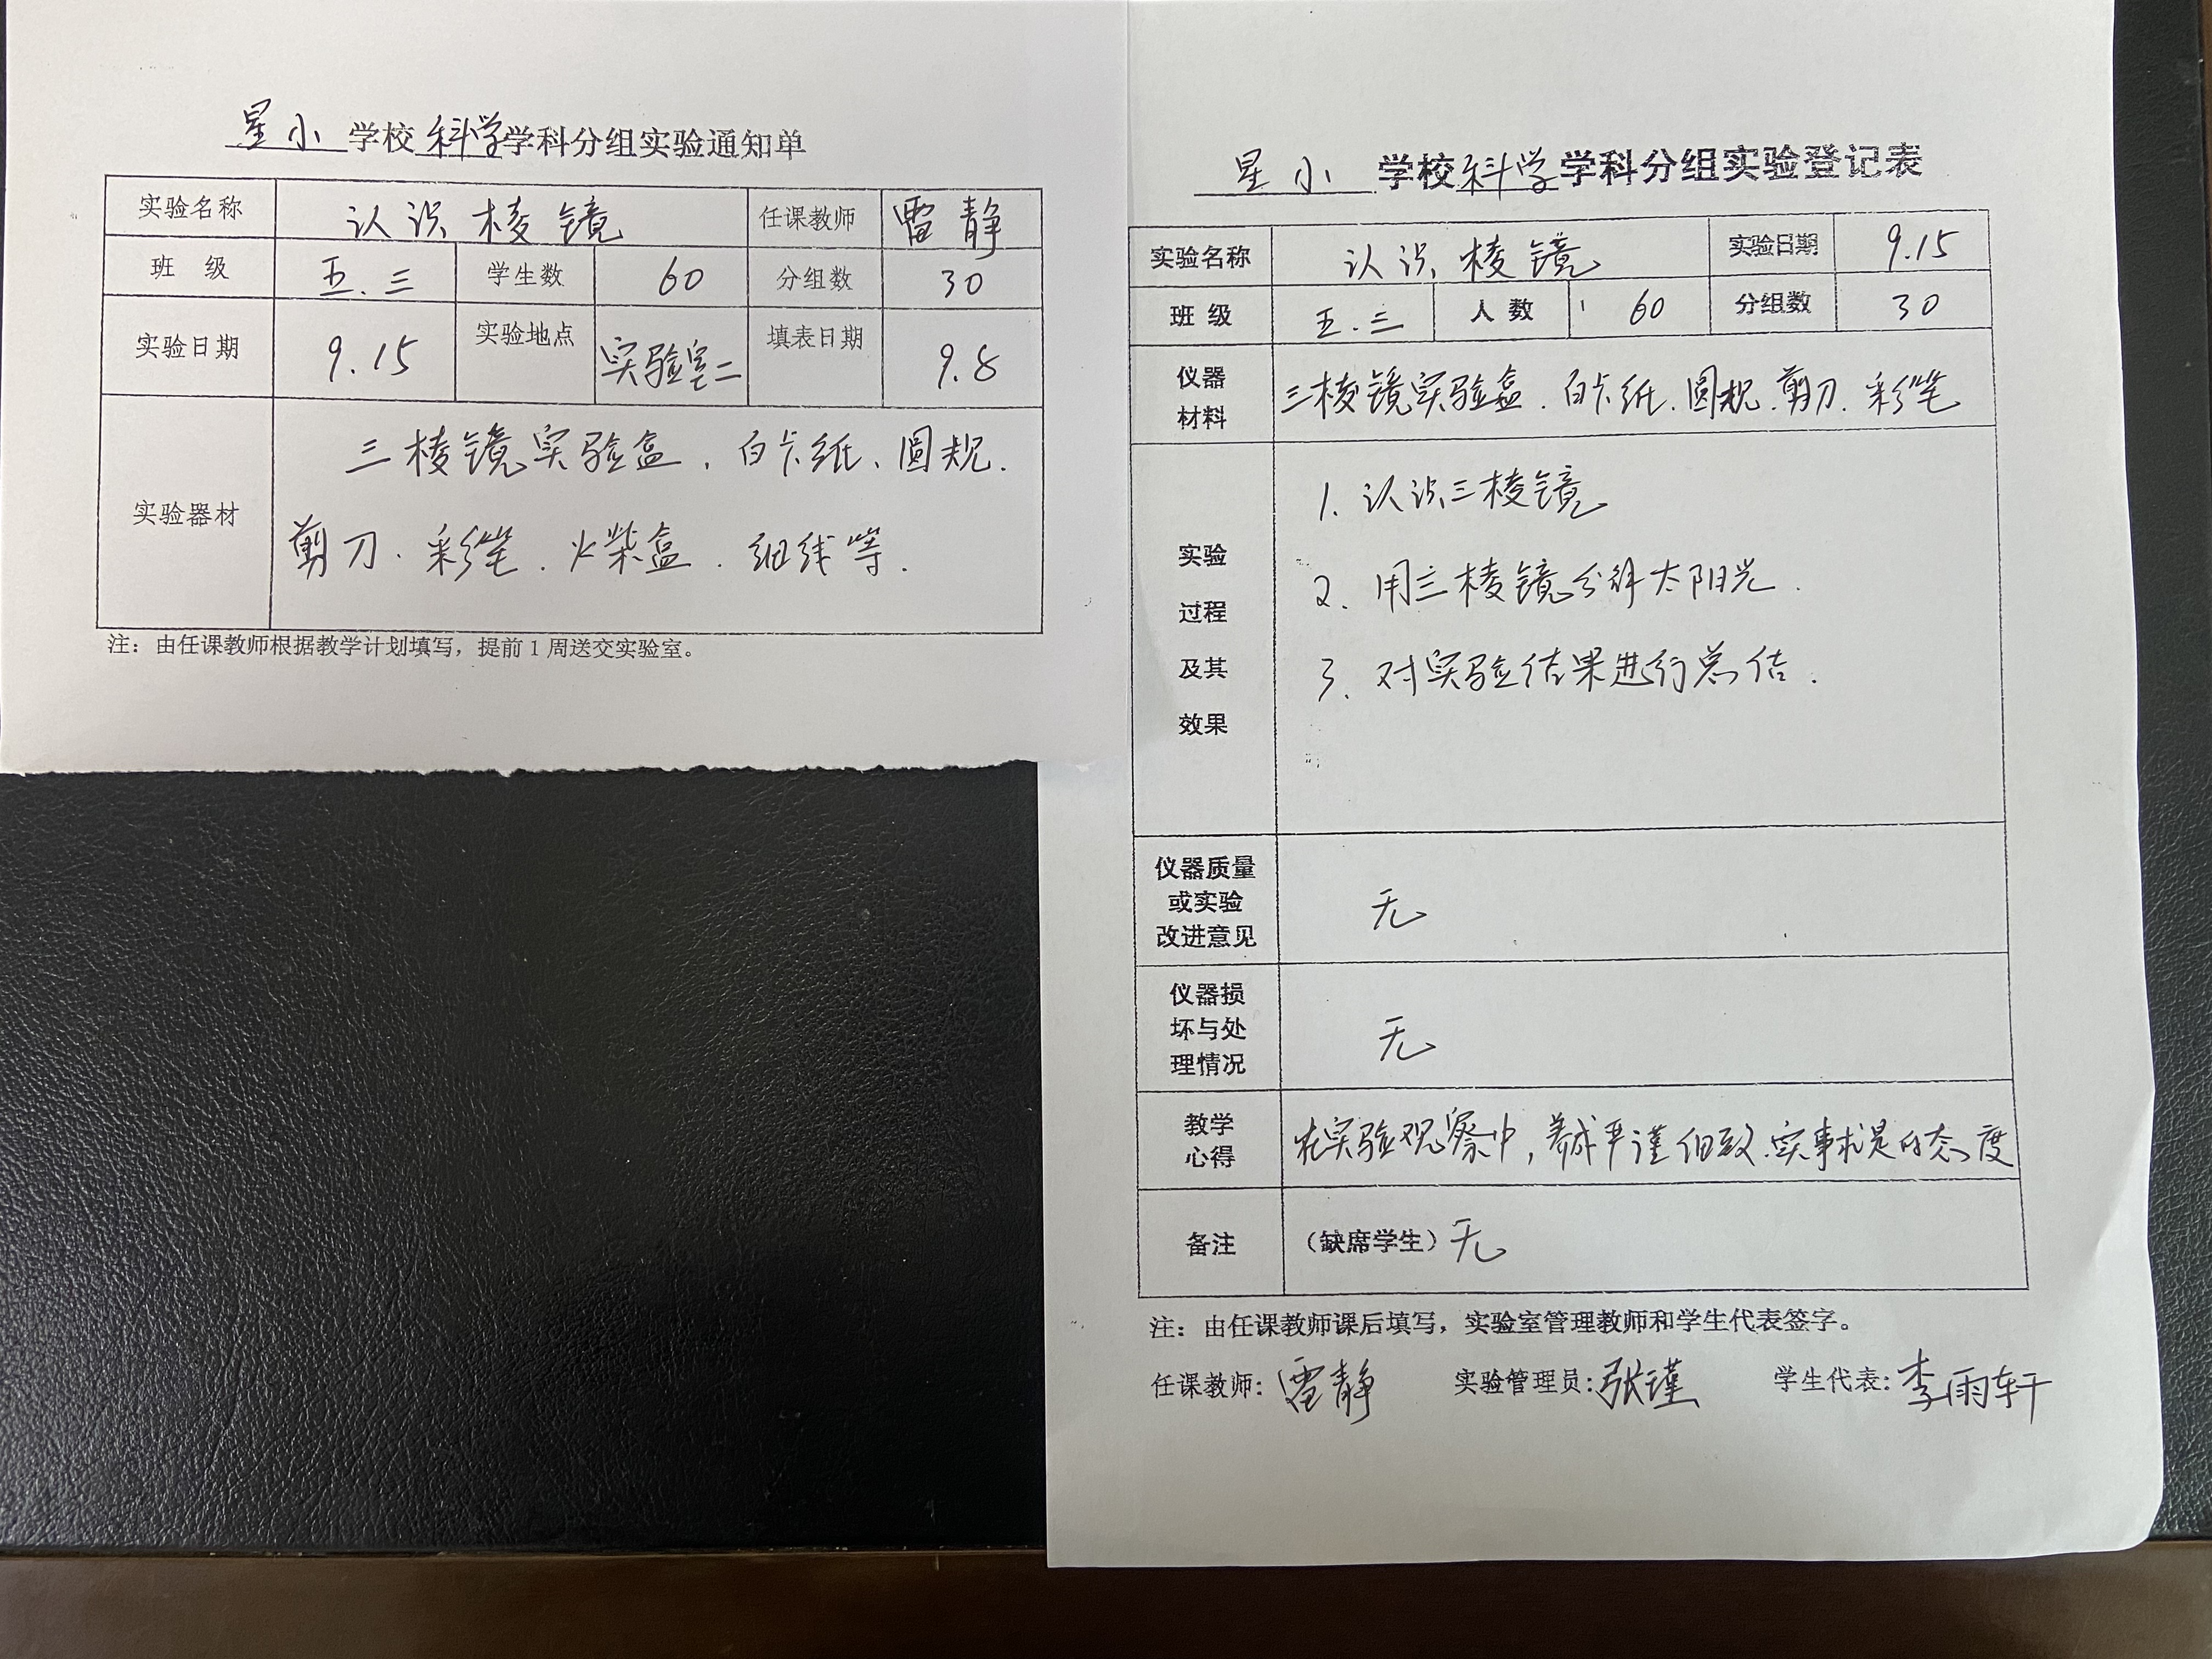 星小学校科学学科分组实验通知单
实验名称 认识棱镜 任课教师 雷静
班 级 五.三 学生数 60 分组数 30
实验日期 9.15 实验地点 实验室二 填表日期 9.8
实验器材
三棱镜实验盒、白卡纸、圆规、
剪刀、彩笔、火柴盒、细线等.
注：由任课教师根据教学计划填写，提前1周送交实验室。
星小学校科学学科分组实验登记表
实验名称 认识棱镜 实验日期 9.15
班 级 五.三 人 数 60 分组数 30
仪器
材料
三棱镜实验盒、白卡纸、圆规、剪刀、彩笔
实验
过程
及其
效果
1. 认识三棱镜
2. 用三棱镜分解太阳光.
3. 对实验结果进行总结.
仪器质量
或实验
改进意见
无
仪器损
坏与处
理情况
无
教学
心得
在实验观察中，养成严谨细致、实事求是的态度
备注 （缺席学生）无
注：由任课教师课后填写，实验室管理教师和学生代表签字。
任课教师：雷静 实验管理员：张瑾 学生代表：李雨轩